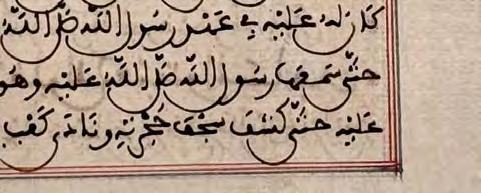 كان له عليه في عهد رسول الله صلى الله
حتى سمعها رسول الله صلى الله عليه وهو
عليه حتى كشف سجف حجرته ونادى كعب